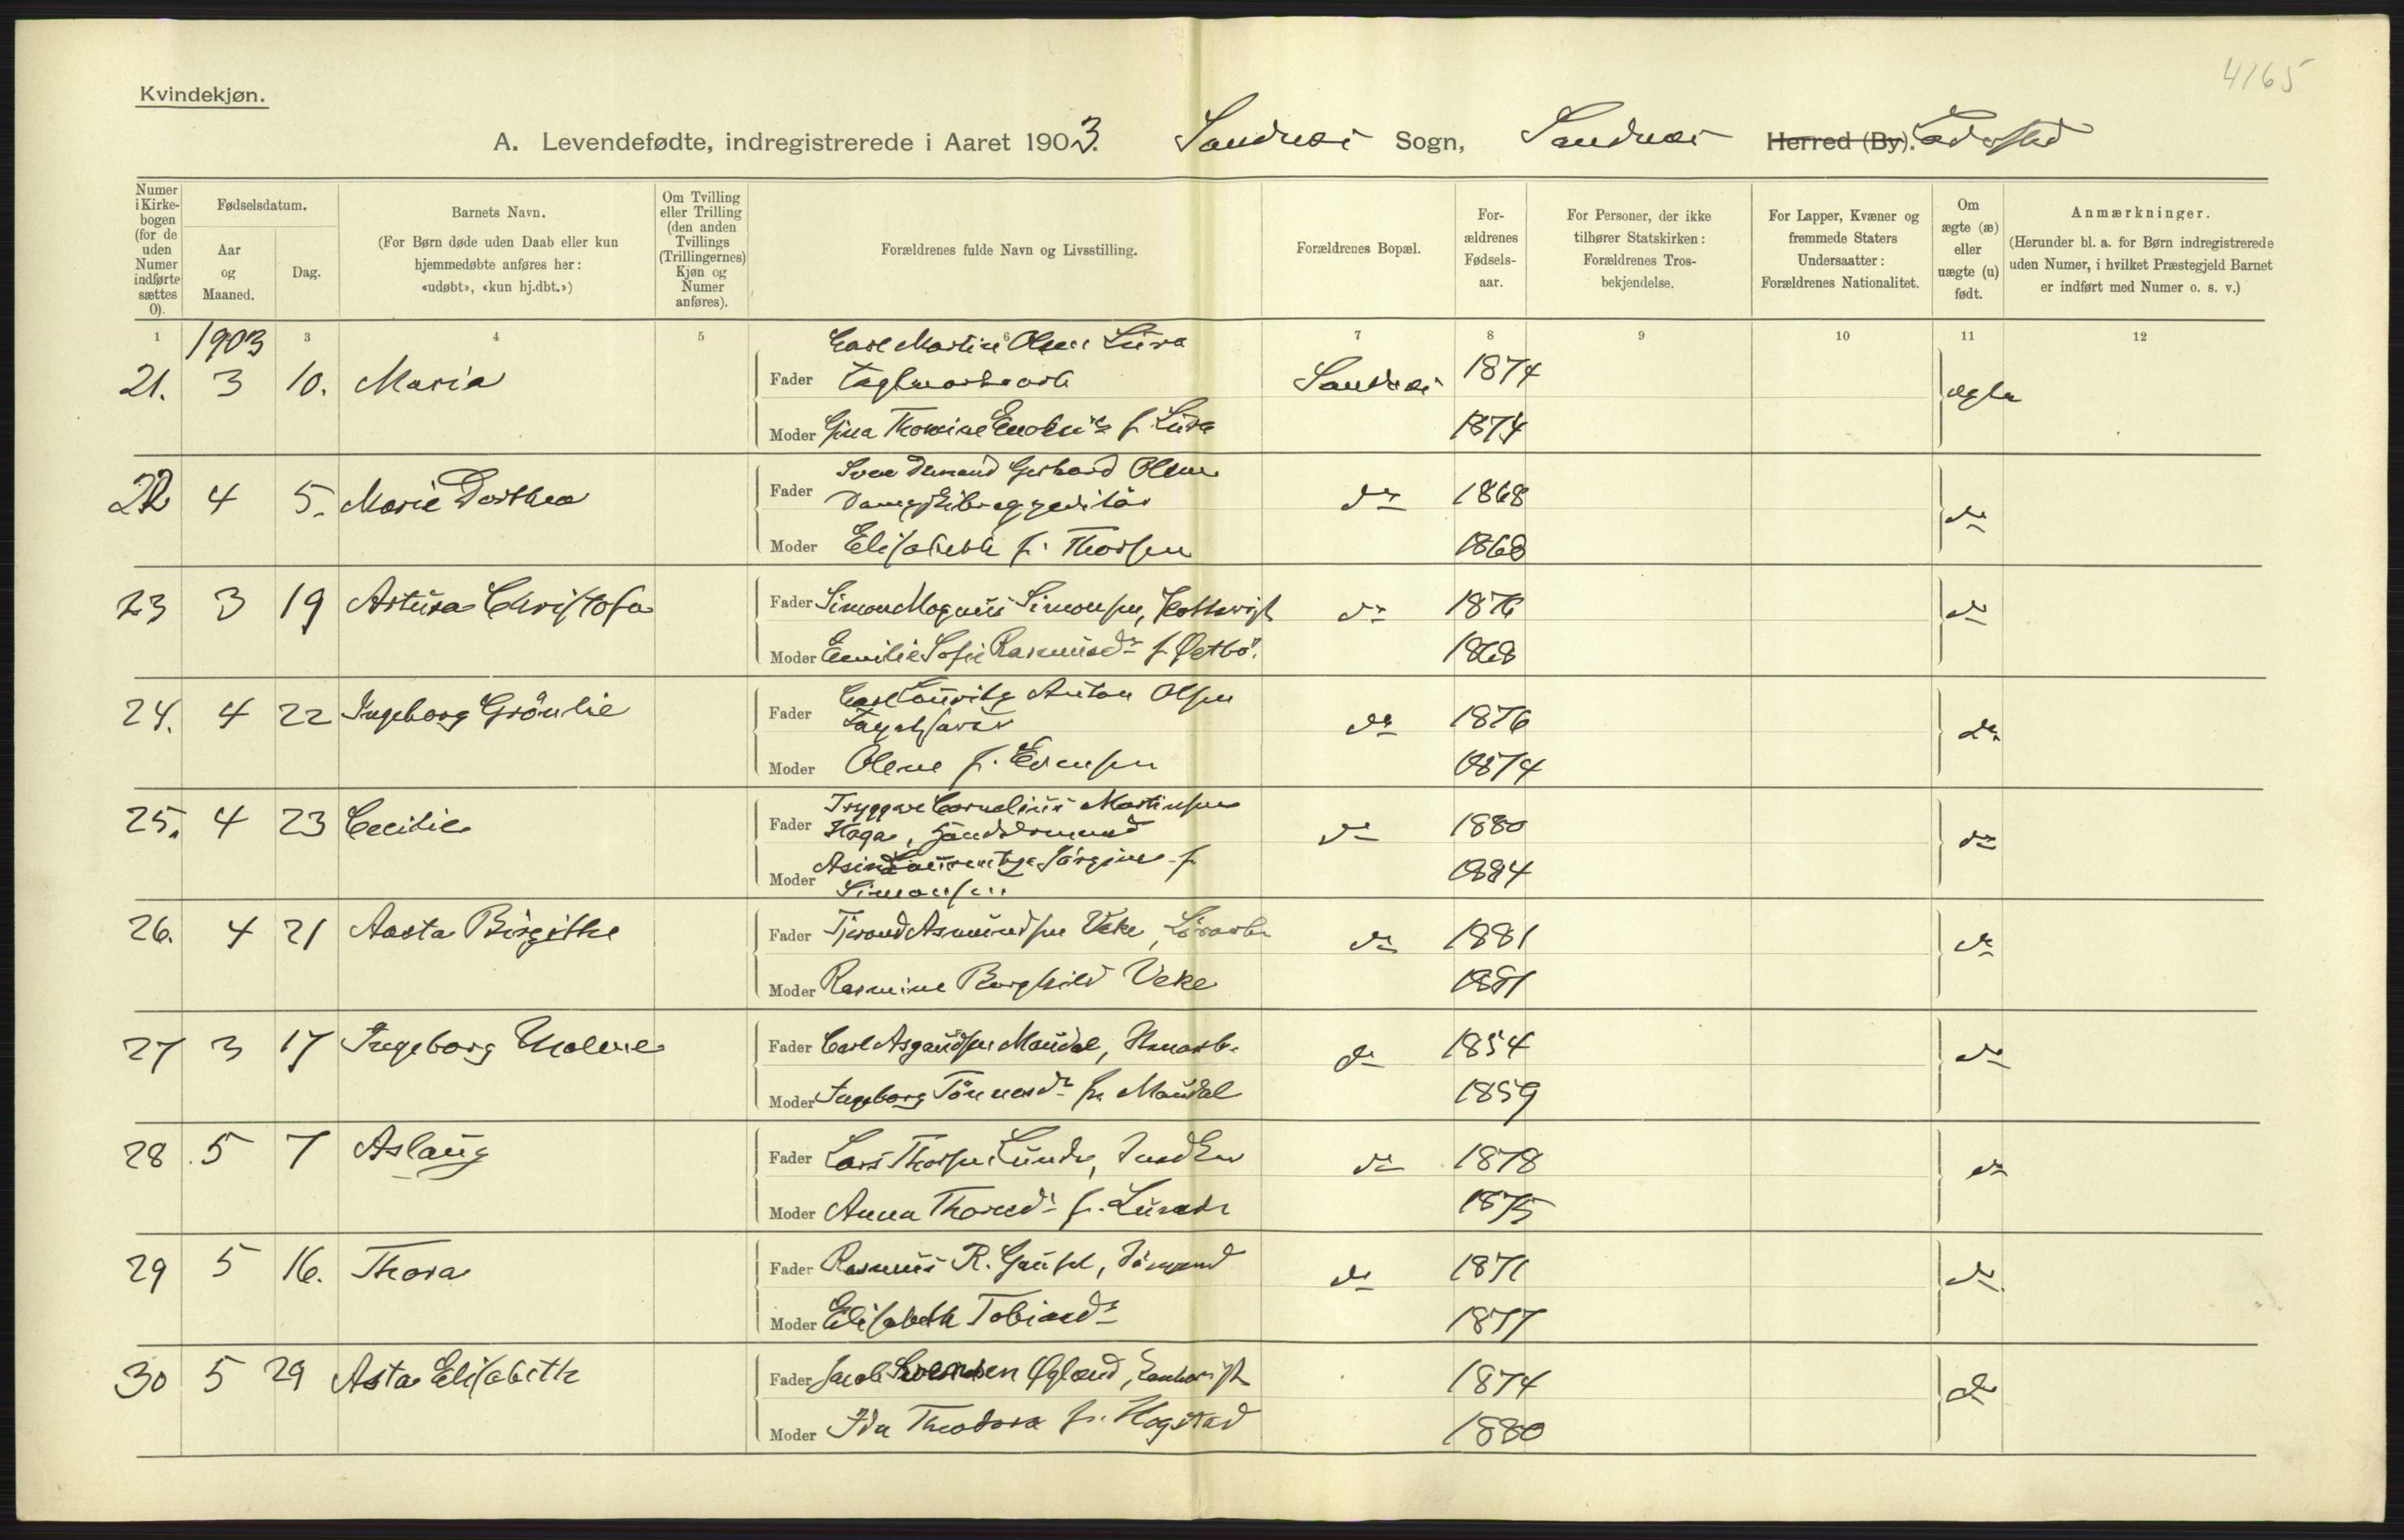 4165
Kvindekjøn.
A. Levendefødte, indregistrerede i Aaret 1903. Sandnæs Sogn, Sandnæs Herred (By). Ladested
Numer i Kirkebogen (for de uden Numer indførte sættes 0).
Fødselsdatum.
Aar og Maaned.
Dag.
Barnets Navn.
(For Børn døde uden Daab eller kun hjemmedøbte anføres her: «udøbt», «kun hj.dbt.»)
Om Tvilling eller Trilling (den anden Tvillings (Trillingernes) Kjøn og Numer anføres).
Forældrenes fulde Navn og Livsstilling.
Forældrenes Bopæl.
For-
ældrenes
Fødsels-
aar.
For Personer, der ikke
tilhører Statskirken:
Forældrenes Tros-
bekjendelse.
For Lapper, Kvæner og
fremmede Staters
Undersaatter:
Forældrenes Nationalitet.
Om
ægte (æ)
eller
uægte (u)
født.
Anmærkninger.
(Herunder bl. a. for Børn indregistrerede
uden Numer, i hvilket Præstegjeld Barnet
er indført med Numer o. s. v.)
1 3 4 5 6 7 8 9 10 11 12
1903
Carl Martin Olsen Lura
21. 3 10. Maria Fader Sandnæs 1874 ægte
Moder Gina Thomine f. Lura 1874
Gerhard Olsen
22 4 5. Marie Dorthea Fader do 1868 do
Moder Elisabeth f. Thorsen 1868
23 3 19 Artura Christofa Fader Simon Magnus Simonsen, do 1876 do
Moder Emilie Sofie Rasmusdr f. Østbö. 1868
24. 4 22 Ingeborg Grönlie Fader Carl Lauritz Anton Olsen do 1876 do
Moder Olene f. Evensen 1874
25. 4 23 Cecilie Fader Tryggve Cornelius Martinsen
Haga, do 1880 do
Moder Jörgine f.
Simonsen 1884
26. 4 21 Aasta Birgithe Fader Tjerand Asmundsen Veke, do 1881 do
Moder Rasmine Borghild Veke 1881
27 3 17 Ingeborg Malene Fader Carl Maudal, do 1854 do
Moder Ingeborg Tönnesdr f. Maudal 1859
28 5 7 Aslaug Fader Lars Thorsen Lunde, do 1878 do
Moder Anna f. Lunde 1875
29 5 16. Thora Fader Rasmus R. Gausel, do 1871 do
Moder Elisabeth Tobiasdr 1877
30 5 29 Asta Elisabeth Fader Jacob Svendsen Øgland, 1874 do
Moder Ida Theodora f. Hogstad 1880